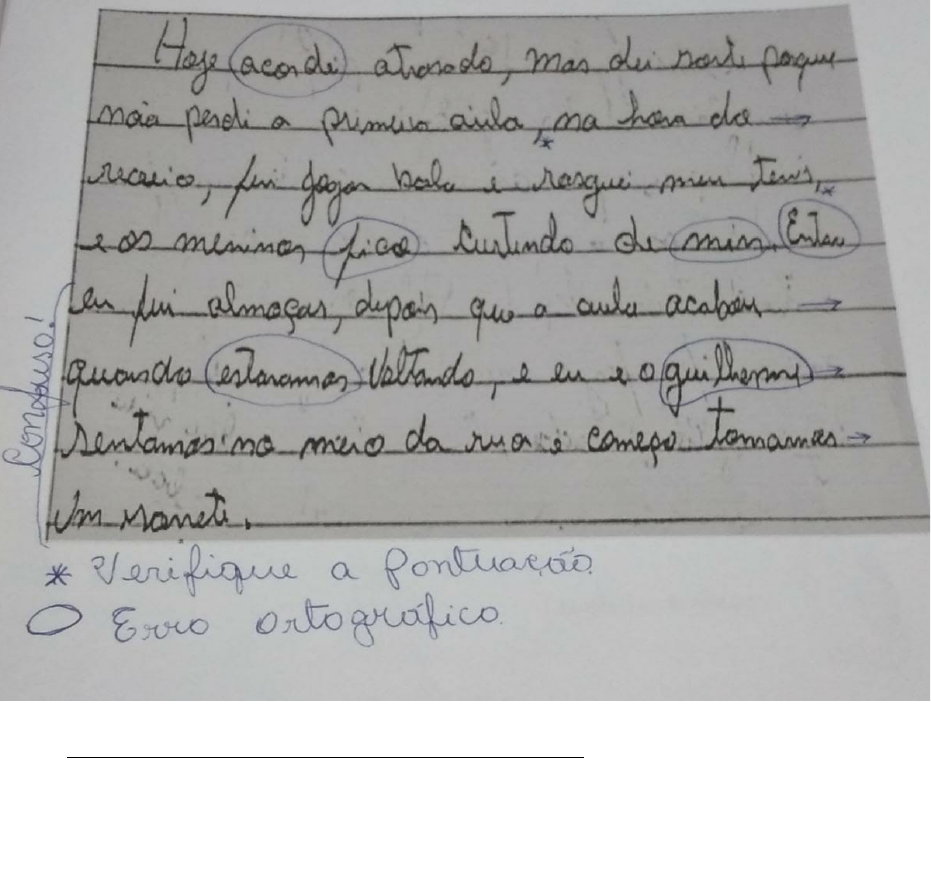 Hoje acordi atrasado, mas dei sorte porque
não perdi a primeira aula, na hora do →
*
recreio, fui gogar bola e rasguei meu tenis, *
e os meninos fico curtindo de min. Entao
eu fui almoçar, depois que a aula acabou →
quando estavamos voltando, e eu e o guilherme →
sentamos no meio da rua e começo tomamos →
um sorvete.
Confuso!
* Verifique a pontuação.
Erro ortográfico.